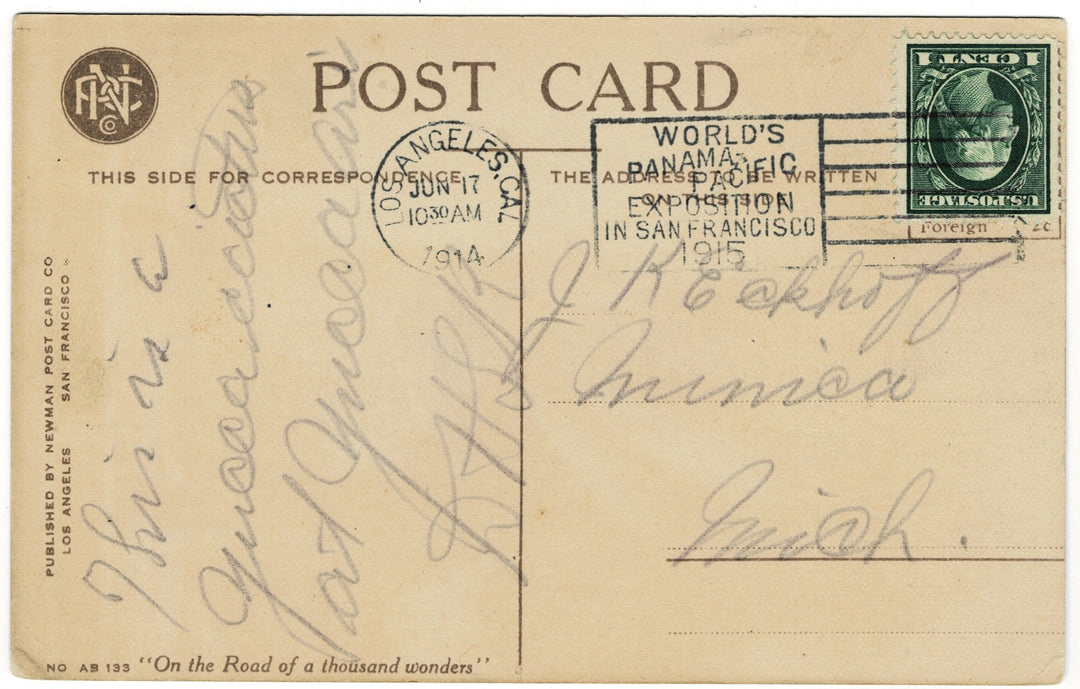 POST CARD
THIS SIDE FOR CORRESPONDENCE
THE ADDRESS TO BE WRITTEN
ON THIS SIDE
LOS ANGELES, CAL
JUN 17
10 30 AM
1914
WORLD'S
PANAMA-
PACIFIC
EXPOSITION
IN SAN FRANCISCO
1915
U.S. POSTAGE
1 CENT 1
Foreign 2c
PUBLISHED BY NEWMAN POST CARD CO
LOS ANGELES SAN FRANCISCO
This is a
J K Eckhoff
Nunica
Mich.
NO AB 133 "On the Road of a thousand wonders"